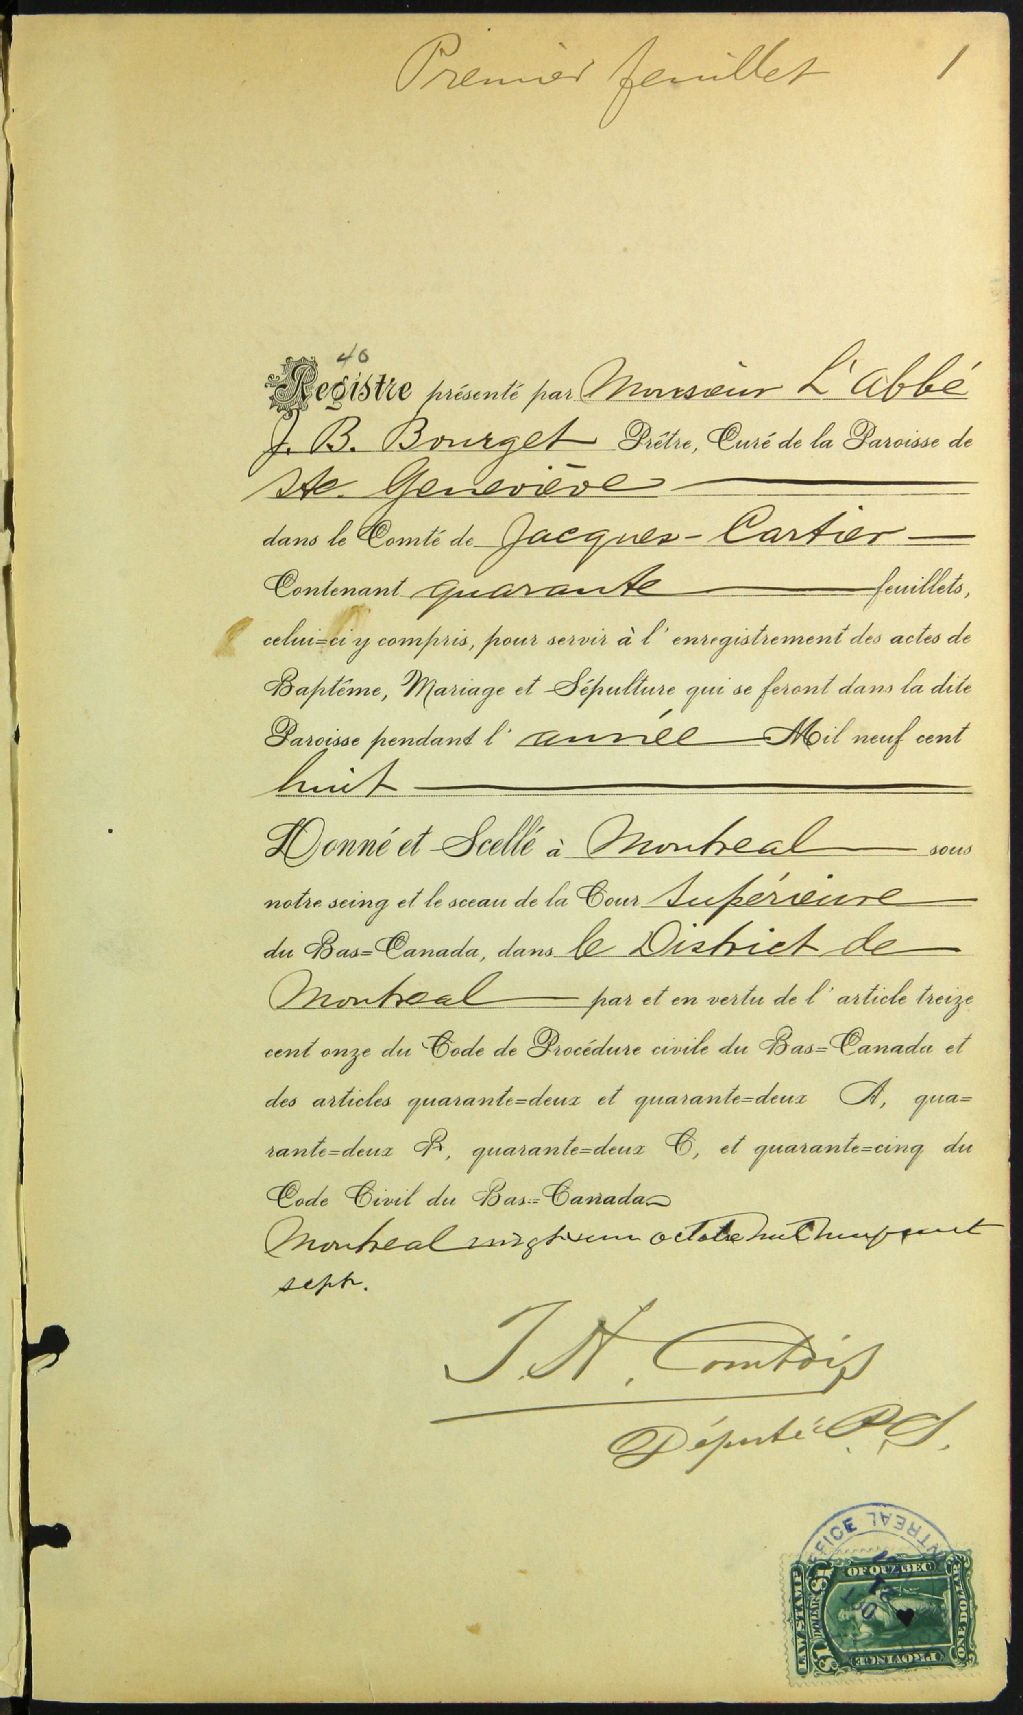 Premier feuillet 1
40
Registre présenté par Monsieur L'abbé
J. B. Bourget Prêtre, Curé de la Paroisse de
Ste. Geneviève
dans le Comté de Jacques-Cartier
Contenant quarante feuillets,
celui=ci y compris, pour servir à l'enregistrement des actes de
Baptême, Mariage et Sépulture qui se feront dans la dite
Paroisse pendant l'année Mil neuf cent
huit
Donné et Scellé à Montreal sous
notre seing et le sceau de la Cour Supérieure
du Bas=Canada, dans le District de
Montreal par et en vertu de l'article treize
cent onze du Code de Procédure civile du Bas=Canada et
des articles quarante=deux et quarante=deux A, qua=
rante=deux B, quarante=deux C, et quarante=cinq du
Code Civil du Bas=Canada
Montreal octobre
sept.
J. A. Comtois
Député P. S.
OFFICE MONTREAL
LAW STAMP
OF QUEBEC
ONE DOLLAR
PROVINCE
$1